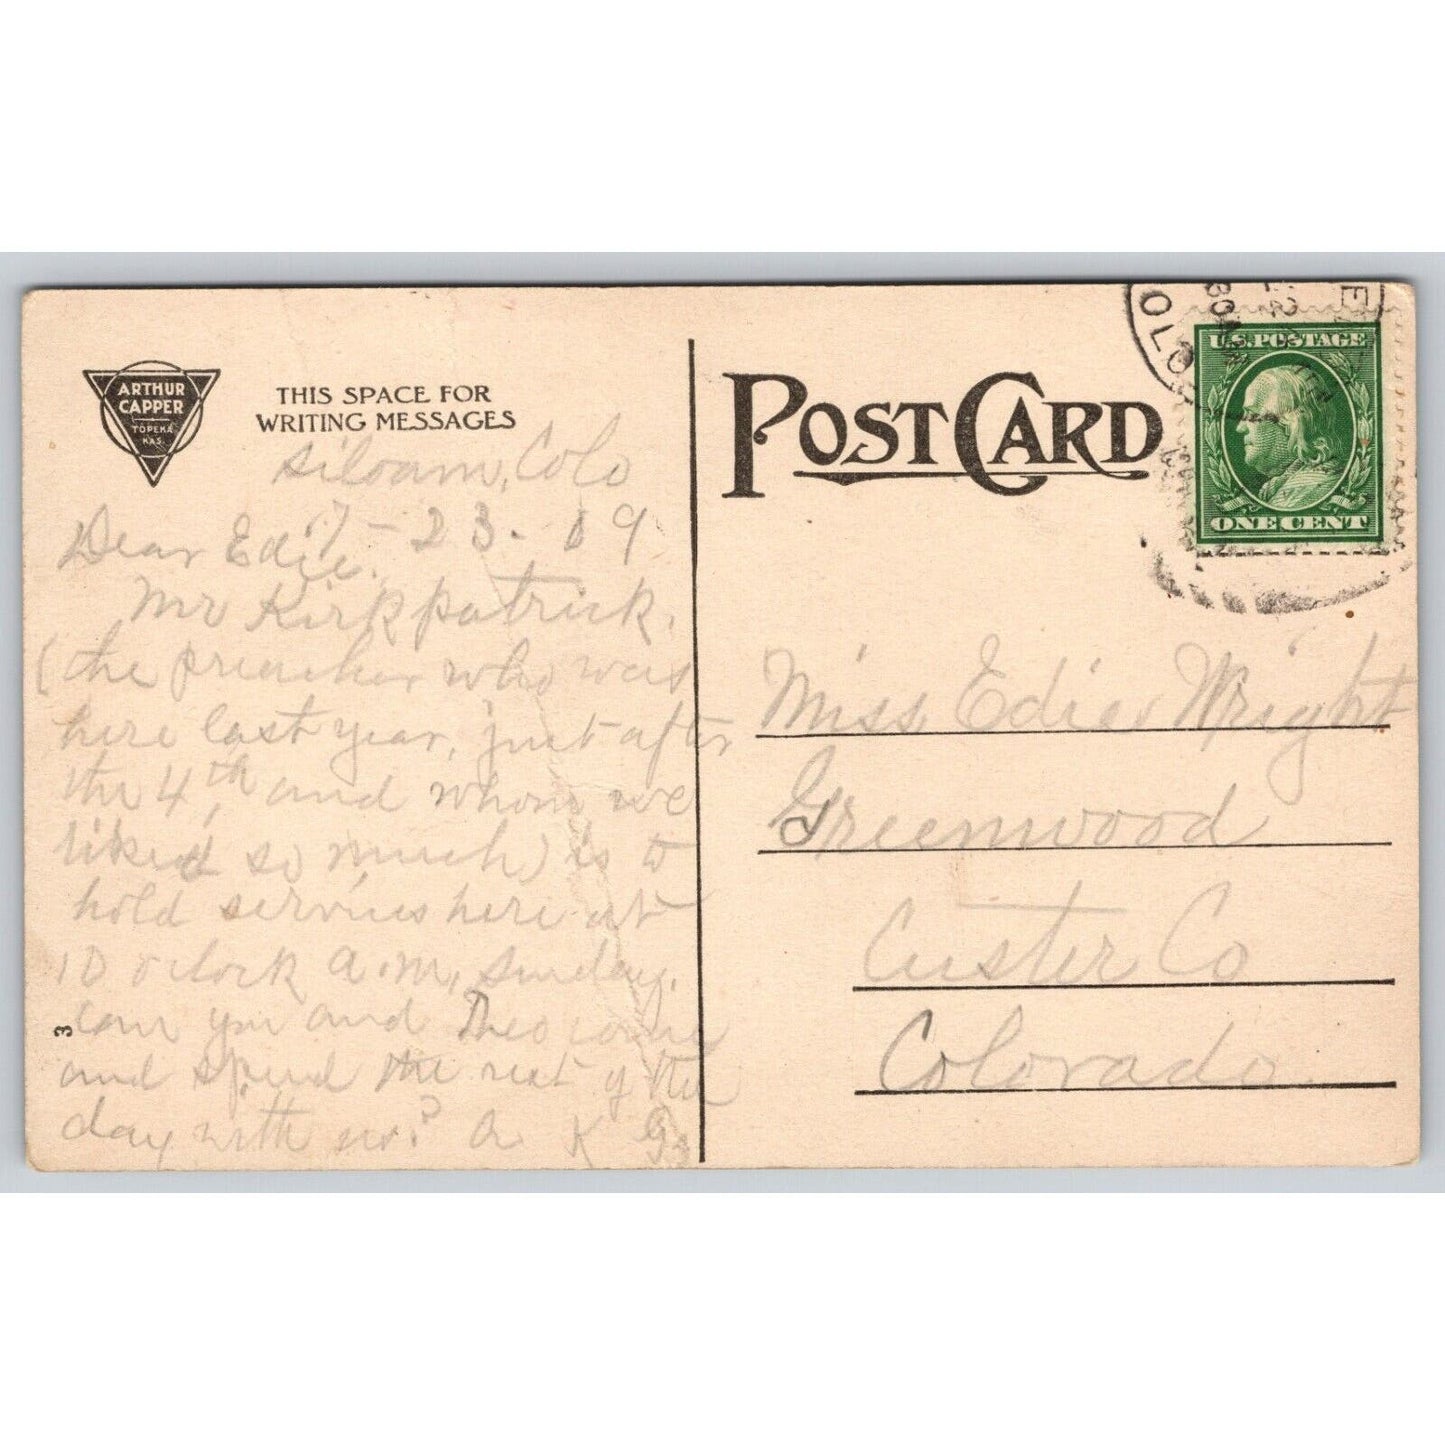 ARTHUR
CAPPER
TOPEKA
KAS.
THIS SPACE FOR
WRITING MESSAGES
Siloam, Colo
7-23-09
Dear Edie.
Mr Kirkpatrick.
(the preacher who was
here last year, just after
the 4th, and whom we
liked so much) is to
hold services here at
10 oclock a.m. Sunday.
Can you and Theo come
and spend the rest of the
day with us? A K G
3
POST CARD
OLO
U.S. POSTAGE
ONE CENT
Miss Edie Wright
Greenwood
Custer Co
Colorado.